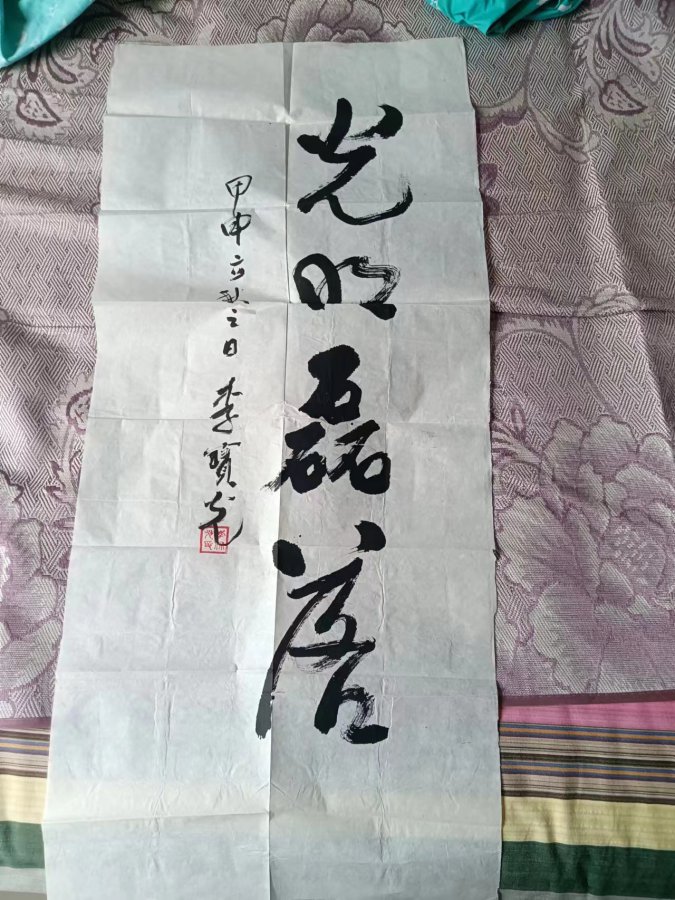 光明磊落
甲申立秋之日 李寶光